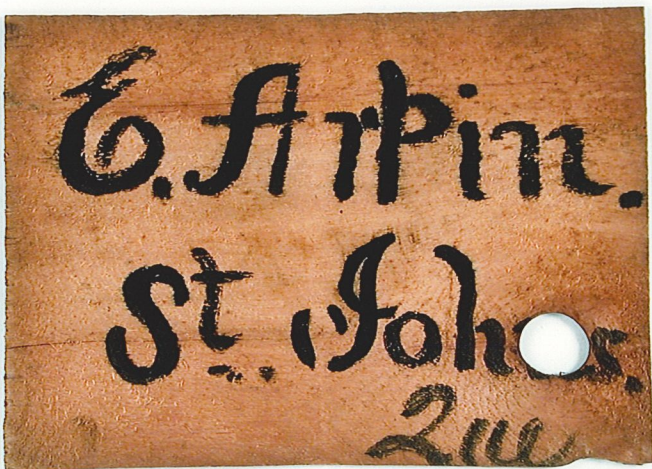 E. Arpin.
St. Johns.
Que